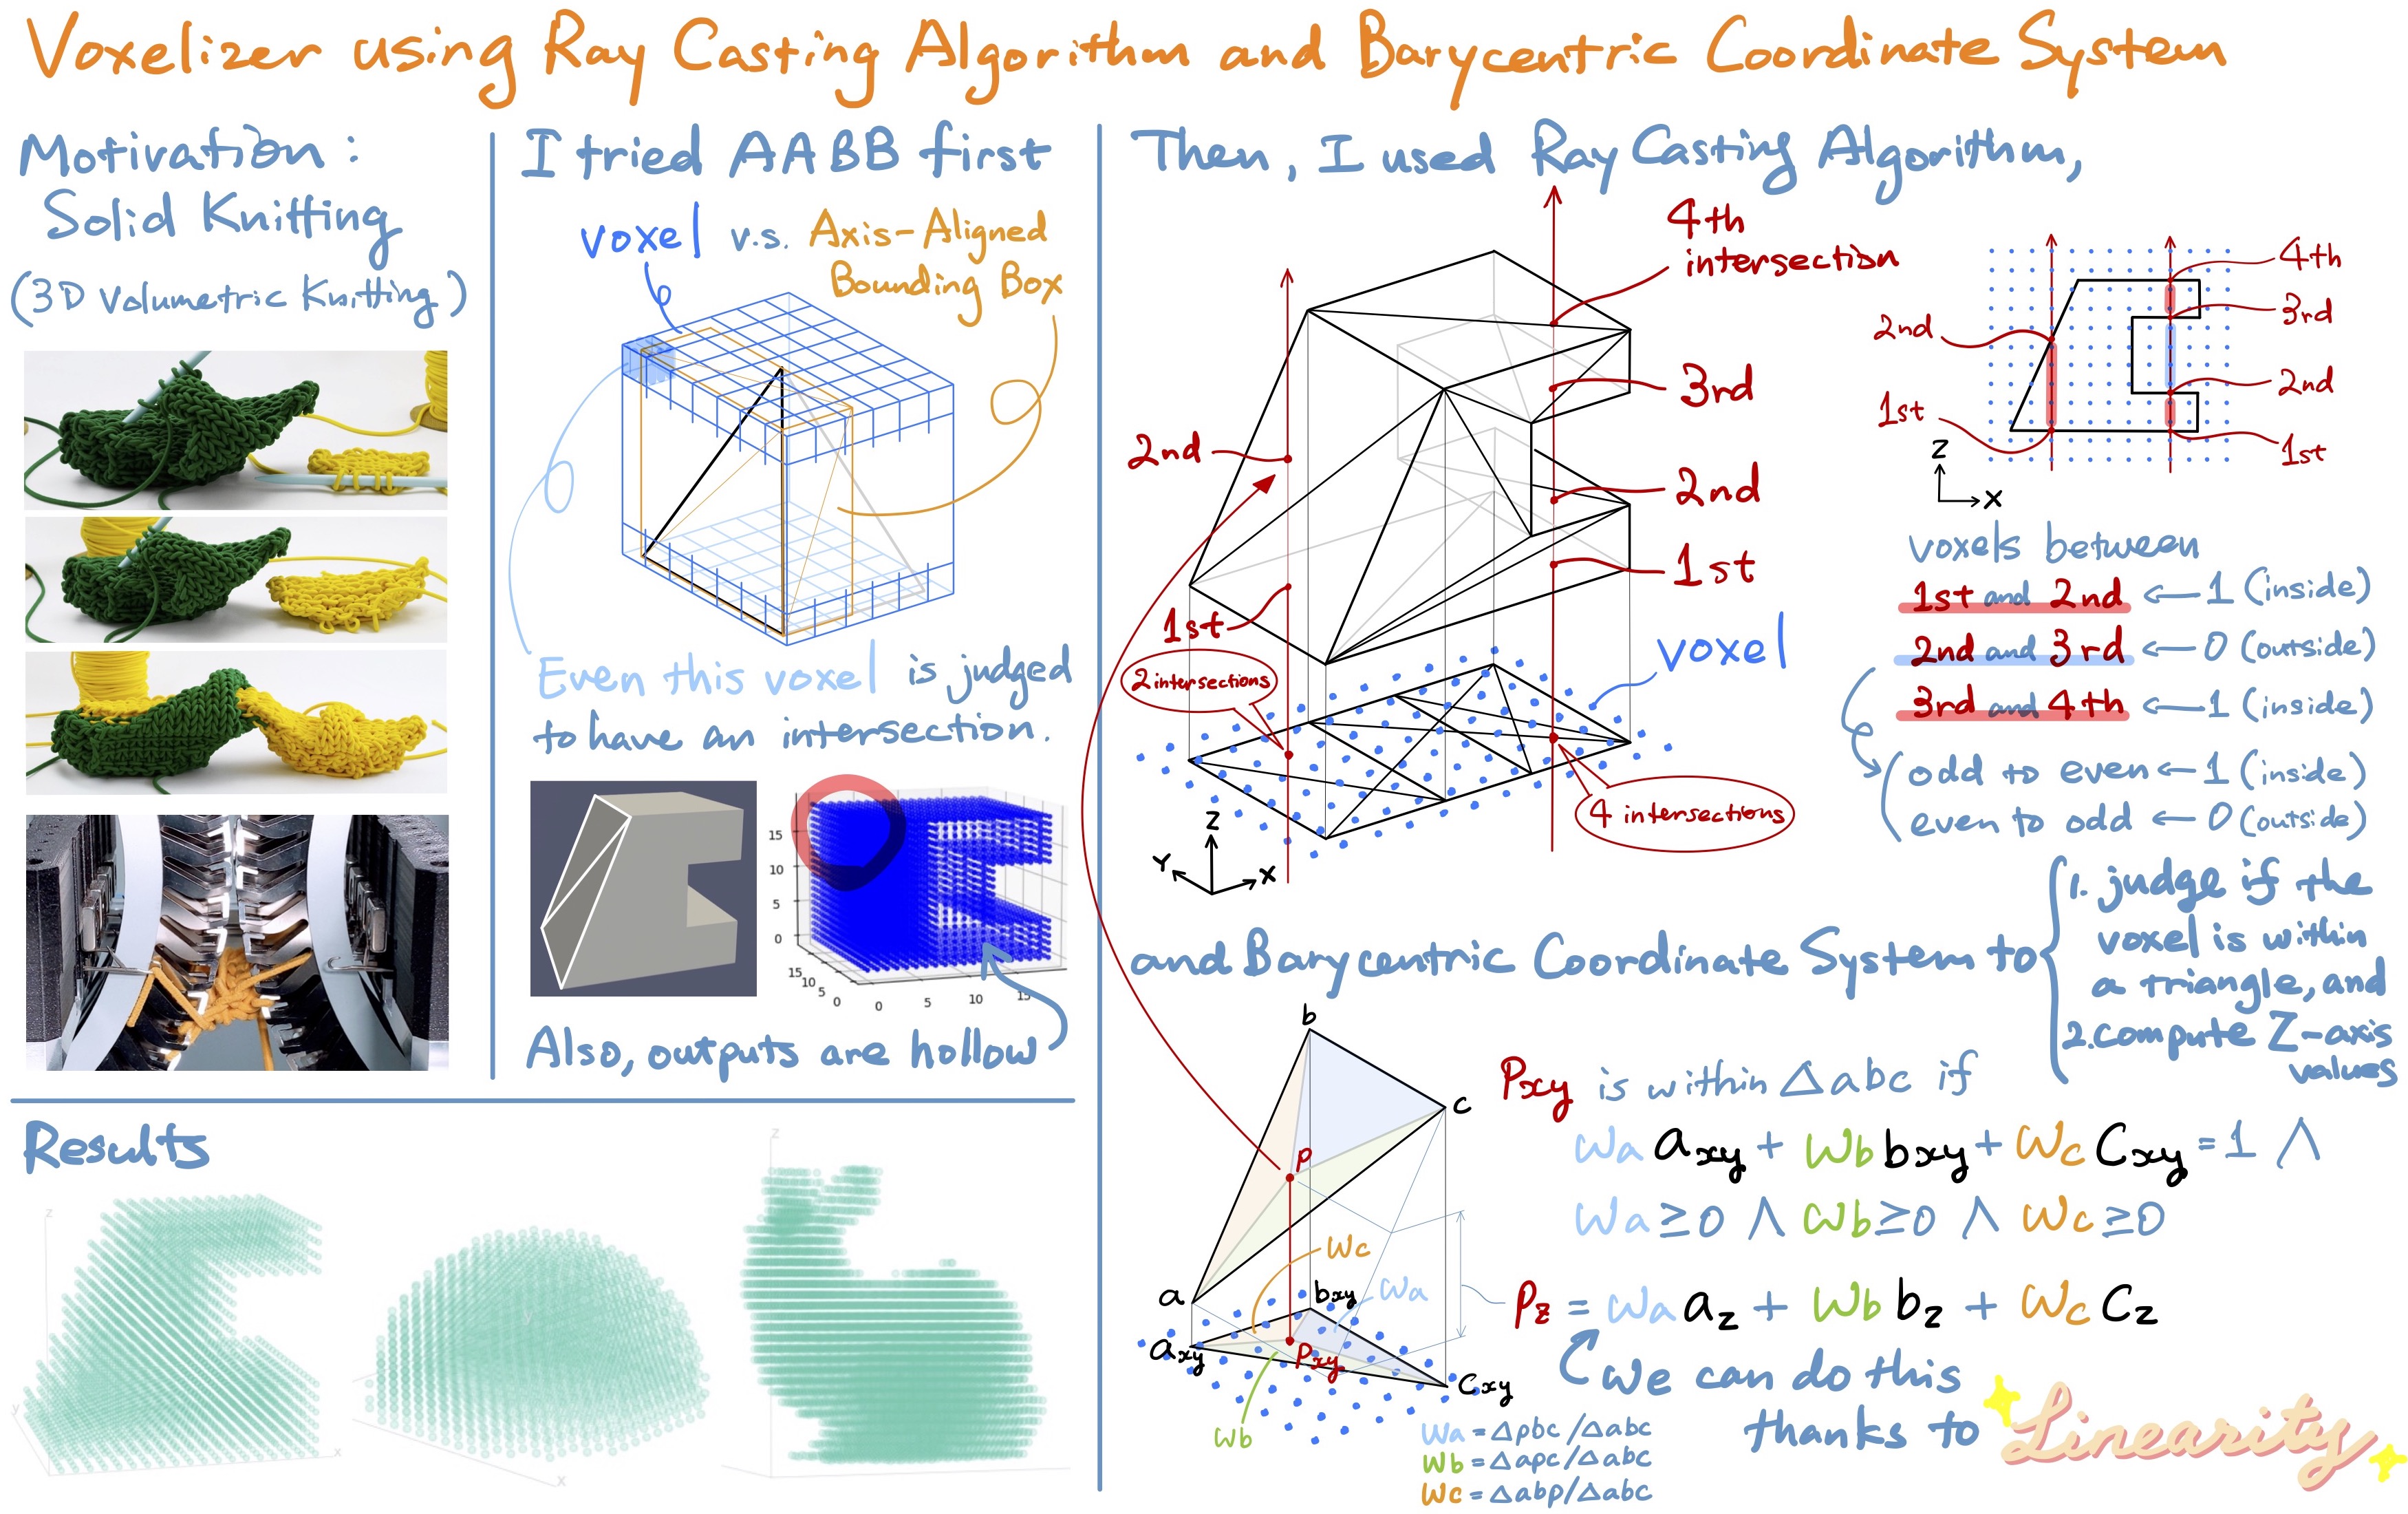 Voxelizer using Ray Casting Algorithm and Barycentric Coordinate System
Motivation:
Solid Knitting
(3D Volumetric Knitting)
I tried AABB first
voxel v.s. Axis-Aligned
Bounding Box
Even this voxel is judged
to have an intersection.
15
10
5
0
15
10
5
0
0
5
10
15
Also, outputs are hollow
Results
z
y
x
y
x
z
Then, I used Ray Casting Algorithm,
4th
intersection
3rd
2nd
1st
2nd
1st
2 intersections
4 intersections
voxel
Z
Y
X
4th
3rd
2nd
1st
2nd
1st
Z
X
voxels between
1st and 2nd ← 1 (inside)
2nd and 3rd ← 0 (outside)
3rd and 4th ← 1 (inside)
odd to even ← 1 (inside)
even to odd ← 0 (outside)
and Barycentric Coordinate System to
1. judge if the
voxel is within
a triangle, and
2. compute Z-axis
values
b
c
P
a
Wc
bxy
Wa
axy
Pxy
Cxy
Wb
Pxy is within △abc if
Wa axy + Wb bxy + Wc Cxy = 1 ∧
Wa ≥ 0 ∧ Wb ≥ 0 ∧ Wc ≥ 0
Pz = Wa az + Wb bz + Wc Cz
We can do this
thanks to Linearity
Wa = △pbc/△abc
Wb = △apc/△abc
Wc = △abp/△abc